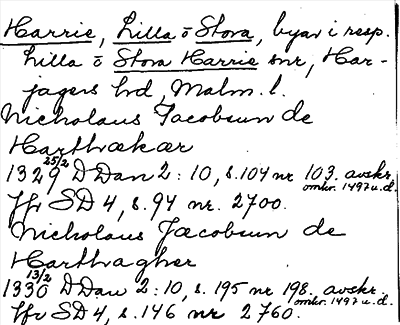 Harrie, Lilla o Stora, byar i resp.
Lilla o Stora Harrie snr, Har-
jagers hd, Malm. l.
Nicholaus Jacobsun de
Harthækær
1329 25/2 D Dan 2:10, s. 104 nr 103. avskr. omkr. 1497 u.d.
Jfr SD 4, s. 94 nr. 2700.
Nicholaus Jacobsun de
Harthagher
1330 13/2 D Dan 2:10, s. 195 nr 198. avskr. omkr. 1497 u.d.
Jfr SD 4, s. 146 nr 2760.